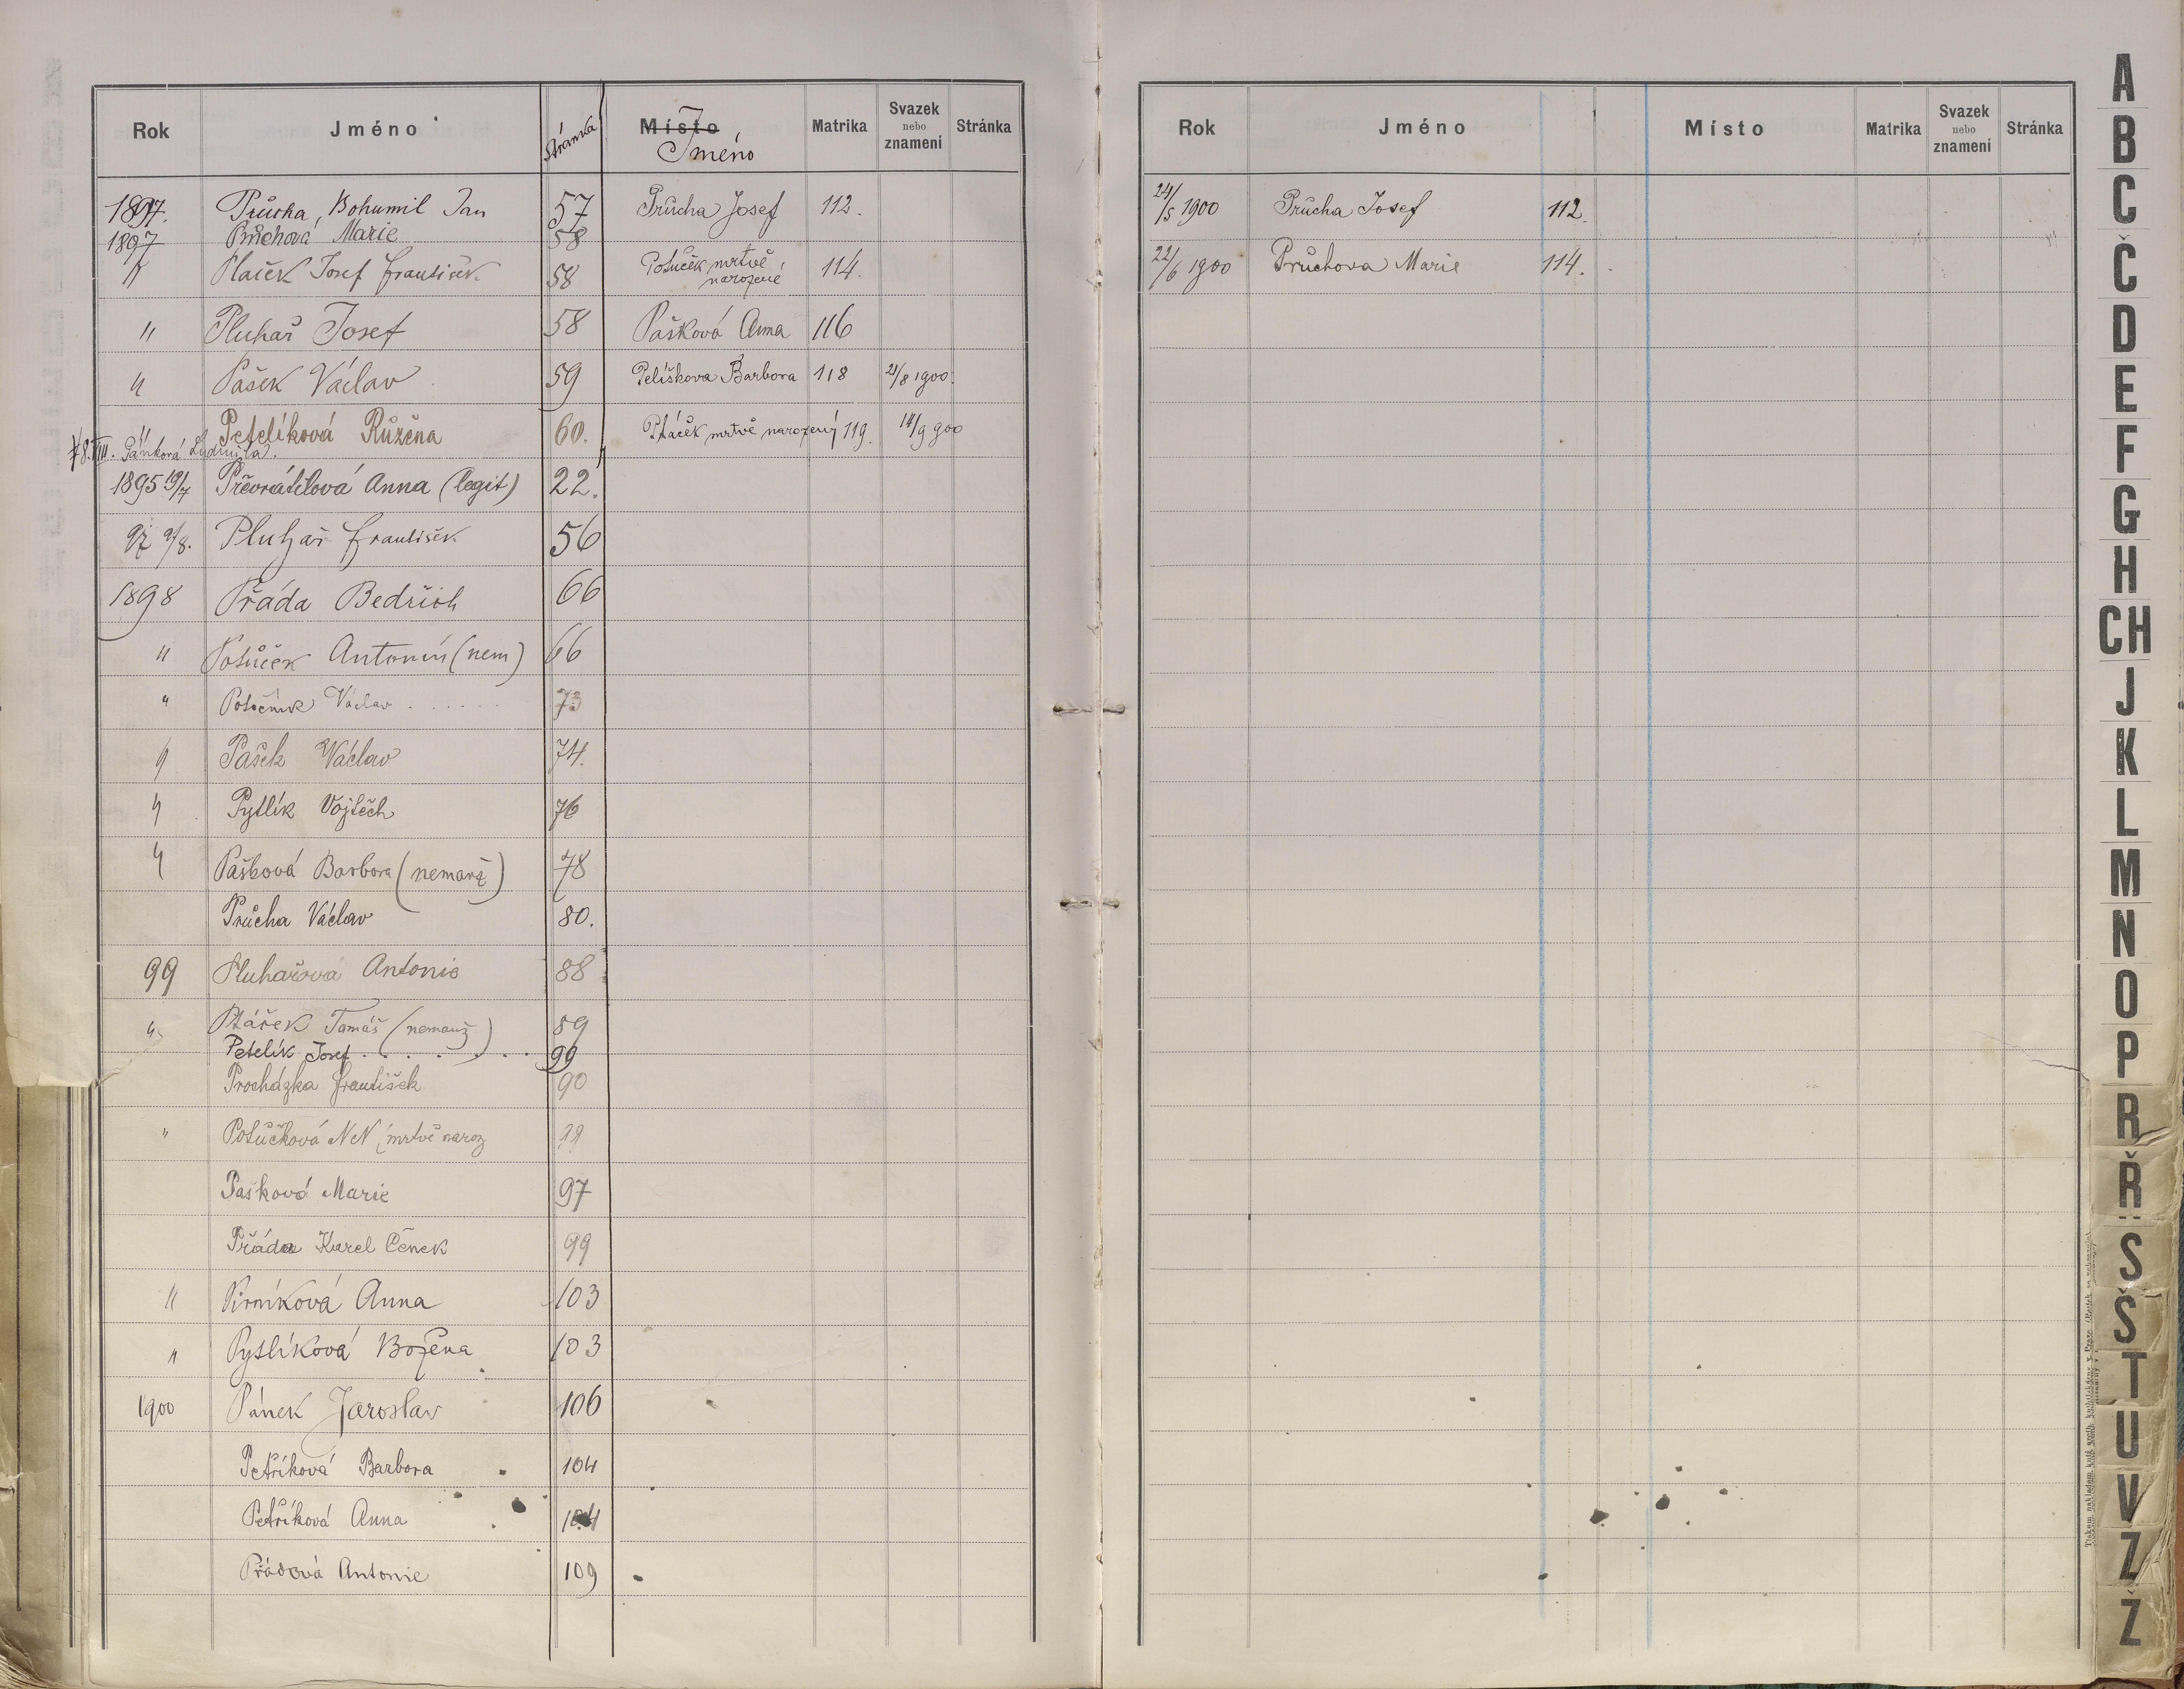 Rok Jméno Stránka Místo Jméno Matrika Svazek nebo znamení Stránka
1897. Průcha, Bohumil Jan 57 Průcha Josef 112.
1897 Průchová Marie 58
" Plaček Josef František 58 Potůček mrtvě narozené 114.
" Pluhař Josef 58 Pašková Anna 116
" Pašek Václav 59 Pelíškova Barbora 118 21/8 1900.
" Petelíková Růžena 60. Ptáček mrtvě narozený 119. 14/9 900
8.VIII. Pánková Ludmila.
1895 19/7 Převrátilová Anna (legit) 22.
97 9/8. Pluhař František 56
1898 Přáda Bedřich 66
" Potůček Antonín (nem) 66
" Potočník Václav . . . . . . 73
" Pašek Václav 74.
" Pytlík Vojtěch 76
" Pašková Barbora (nemanž) 78
Průcha Václav 80.
99 Pluhařová Antonie 88
" Ptáček Tomáš (nemanž) 89
Petelík Josef . . . . . . . 99
Procházka František 90
" Potůčková NN, mrtvě naroz
Pašková Marie 97
Přáda Karel Čeněk 99
" Pirníková Anna 103
" Pytlíková Božena 103
1900 Pánek Jaroslav 106
Petříková Barbora 104
Petříková Anna
Přádová Antonie 109
Rok Jméno Místo Matrika Svazek nebo znamení Stránka
24/5 1900 Průcha Josef 112.
22/6 1900 Průchova Marie 114.
A
B
C
Č
D
E
F
G
H
CH
J
K
L
M
N
O
P
R
Ř
S
Š
T
U
V
Z
Ž